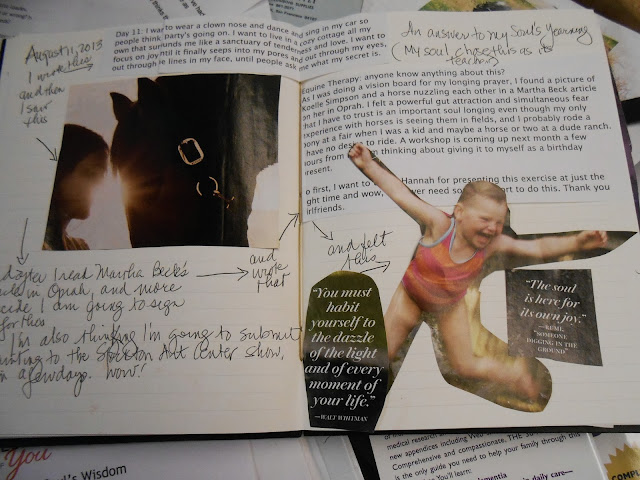 Day 11: I want to wear a clown nose and dance and sing in my car so
people think Party's going on. I want to live in a cozy cottage all my
own that surrounds me like a sanctuary of tenderness and love. I want to
focus on joy until it finally seeps into my pores and out through my eyes,
out through the lines in my face, until people ask me what my secret is.
August 11, 2013
I wrote this
and then
I saw
this
An answer to my Soul's Yearning
(My soul chose this as its
teacher)
Equine Therapy: anyone know anything about this?
As I was doing a vision board for my longing prayer, I found a picture of
Koelle Simpson and a horse nuzzling each other in a Martha Beck article
on her in Oprah. I felt a powerful gut attraction and simultaneous fear
that I have to trust is an important soul longing even though my only
experience with horses is seeing them in fields, and I probably rode a
pony at a fair when i was a kid and maybe a horse or two at a dude ranch.
have no desire to ride. A workshop is coming up next month a few
hours from thinking about giving it to myself as a birthday
present.
So first, I want to Hannah for presenting this exercise at just the
right time and wow, ever need so art to do this. Thank you
girlfriends.
day later I read Martha Beck's
in Oprah, and more
I am going to sign
for this
and
wrote
that
and felt
this
I'm also thinking I'm going to submit
painting to the Stockton Art Center show,
in a few days. Wow!
"You must
habit
yourself to the
dazzle of
the light
and of every
moment of
your life."
—WALT WHITMAN
"The soul
is here for
its own joy."
—RUMI,
"SOMEONE
DIGGING IN THE
GROUND"
You
's Wisdom
medical research
new appendices including Web
Comprehensive and compassionate, THE 36
is the only guide you need to help your family through this
You'll learn:
dementia
daily care—
COMPL